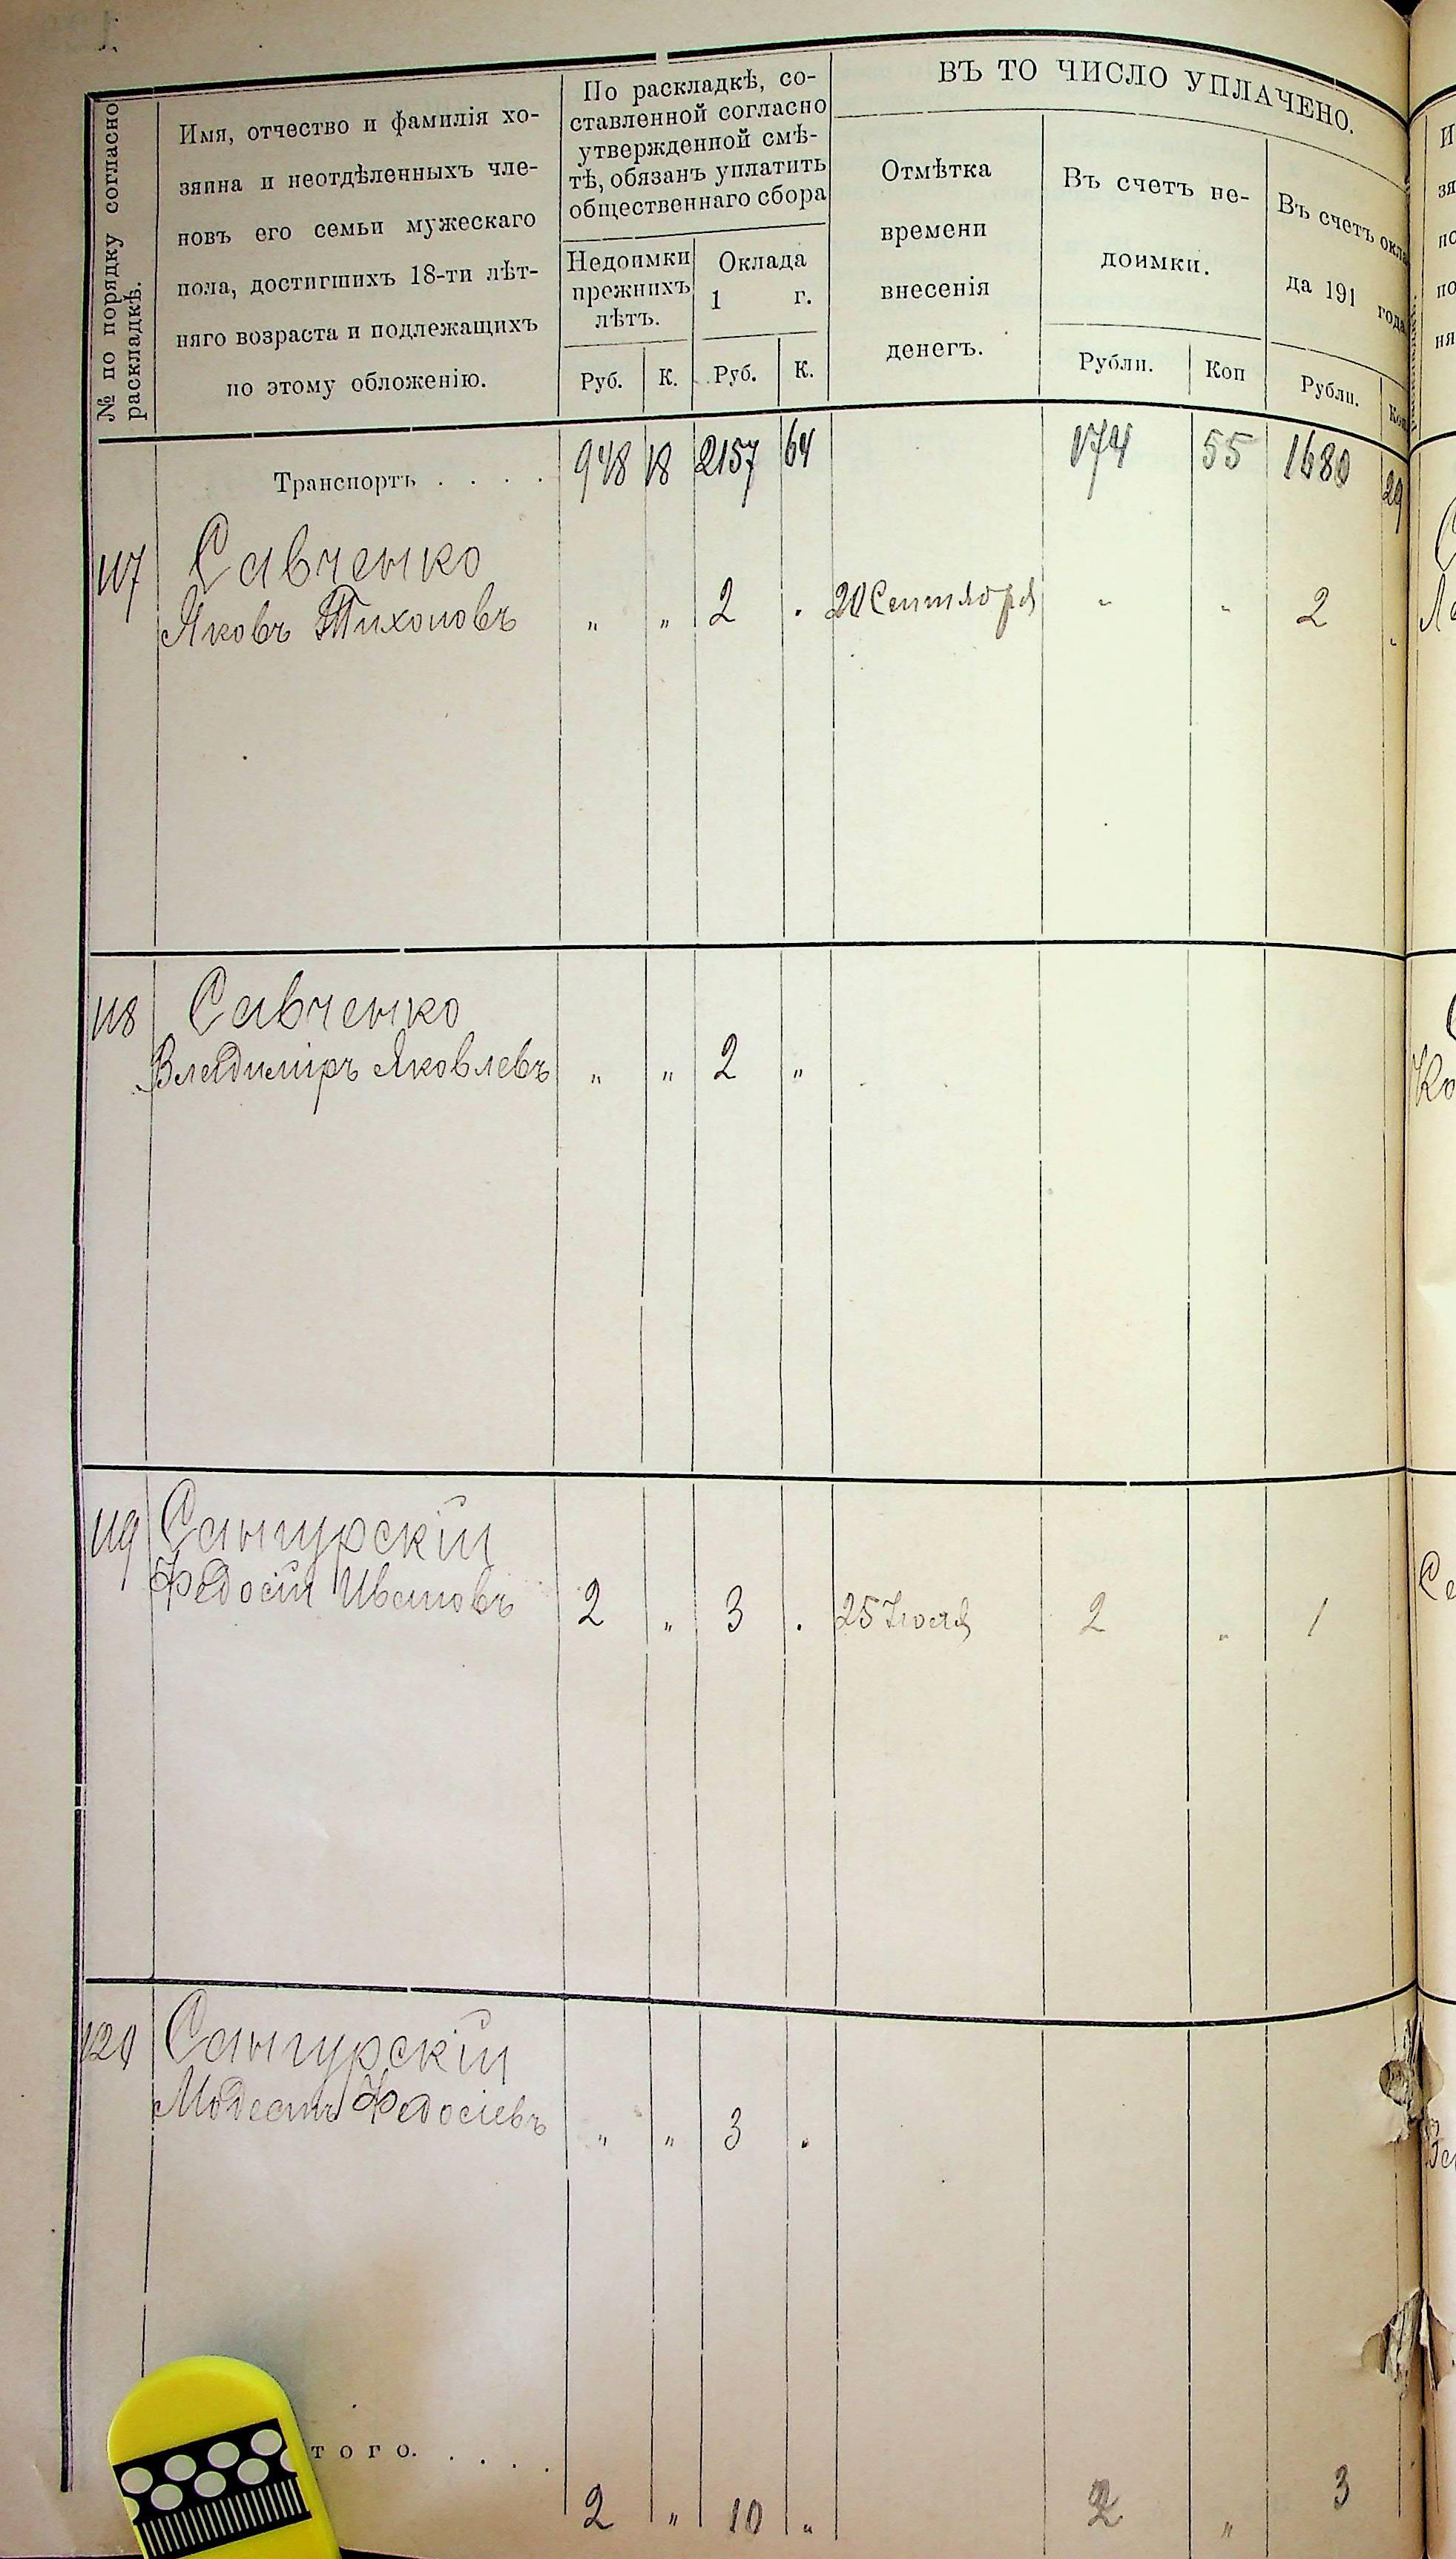 № по порядку согласно
раскладкѣ.
Имя, отчество и фамилія хо-
зяина и неотдѣленныхъ чле-
новъ его семьи мужескаго
пола, достигшихъ 18-ти лѣт-
няго возраста и подлежащихъ
по этому обложенію.
По раскладкѣ, со-
ставленной согласно
утвержденной смѣ-
тѣ, обязанъ уплатить
общественнаго сбора
Недоимки
прежнихъ
лѣтъ.
Руб. К.
Оклада
1 г.
Руб. К.
ВЪ ТО ЧИСЛО УПЛАЧЕНО.
Отмѣтка
времени
внесенія
денегъ.
Въ счетъ не-
доимки.
Рубли. Коп
Въ счетъ окла
да 191 года
Рубли. Коп
Транспортъ . . . . 948 18 2157 64 174 55 1680 29
117 Савченко
Яковъ Тихоновъ „ „ 2 . 20 Сентября „ „ 2 „
118 Савченко
Владиміръ Яковлевъ „ „ 2 „
119 Сангурскій
Федосій Ивановъ 2 „ 3 . 25 Іюля 2 „ 1
120 Сангурскій
Модестъ Федосіевъ „ „ 3 .
того. . . . . 2 „ 10 „ 2 „ 3